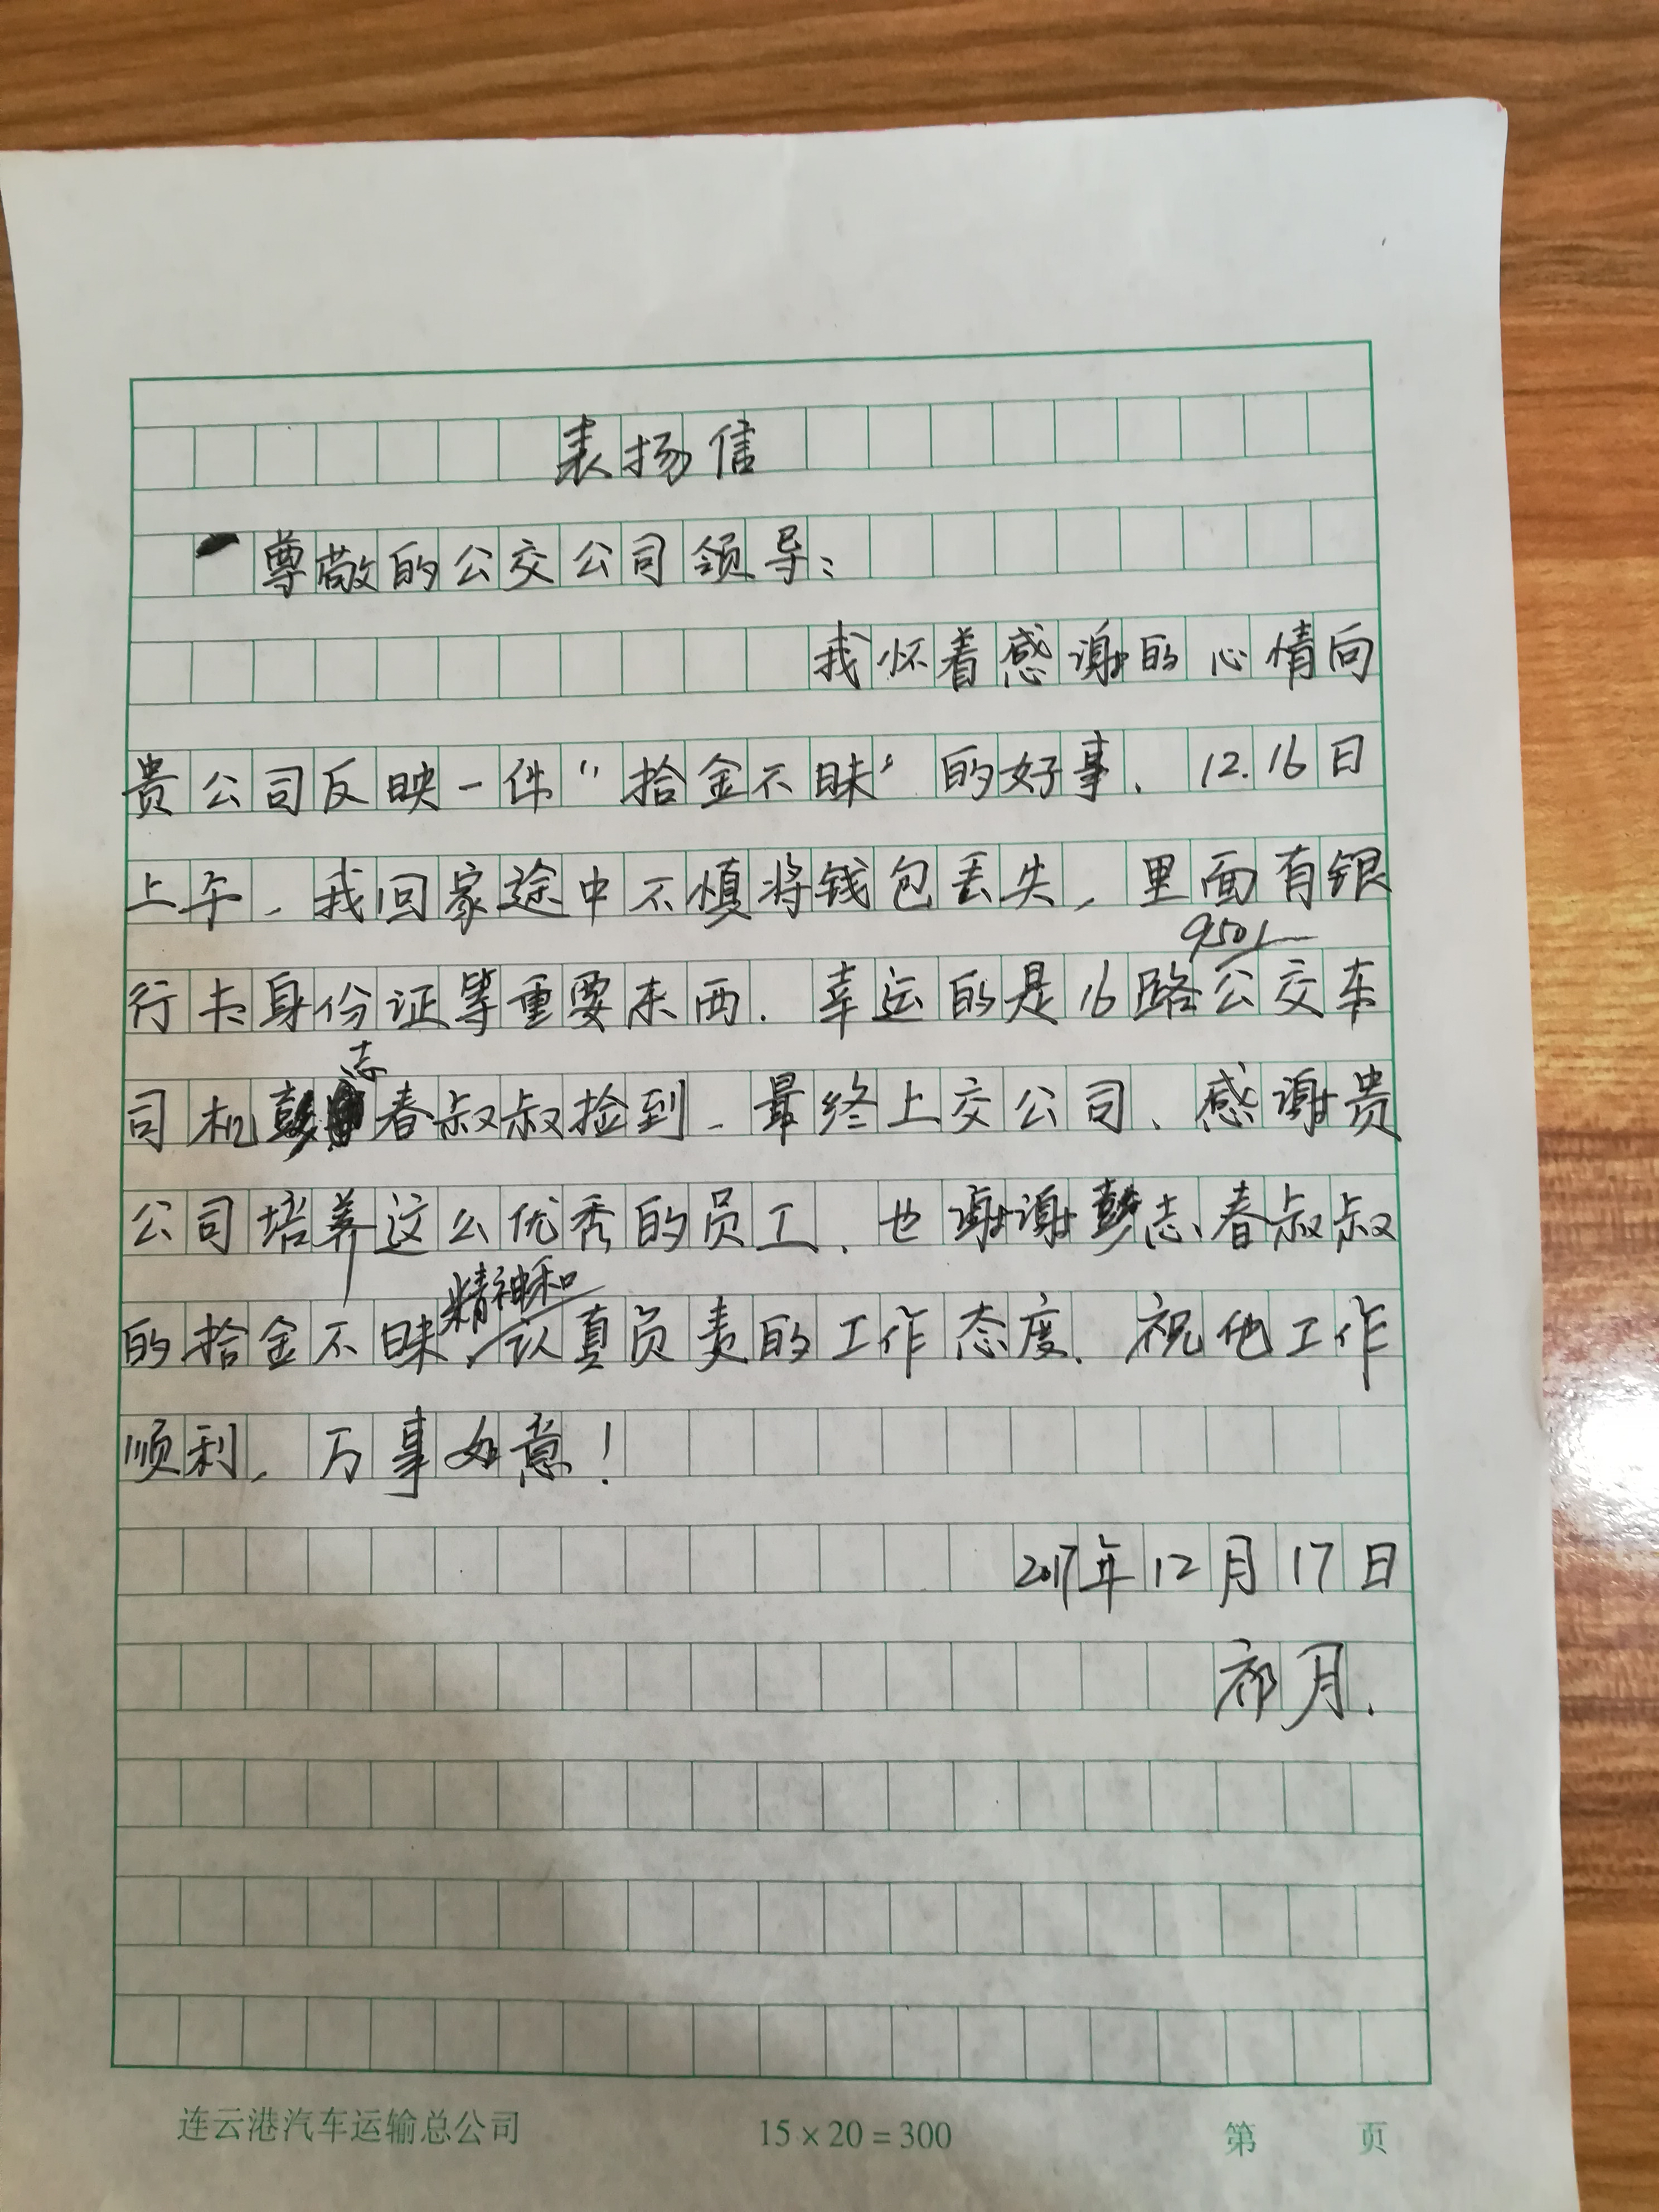 表扬信
尊敬的公交公司领导:
我怀着感谢的心情向
贵公司反映一件“拾金不昧”的好事. 12.16日
上午,我回家途中不慎将钱包丢失,里面有银
9501
行卡身份证等重要东西.幸运的是16路公交车
志
司机彭春叔叔捡到,最终上交公司、感谢贵
公司培养这么优秀的员工.也谢谢彭志春叔叔
精神和
的拾金不昧,认真负责的工作态度.祝他工作
顺利,万事如意!
2017年12月17日
祁月.
连云港汽车运输总公司 15×20=300 第 页